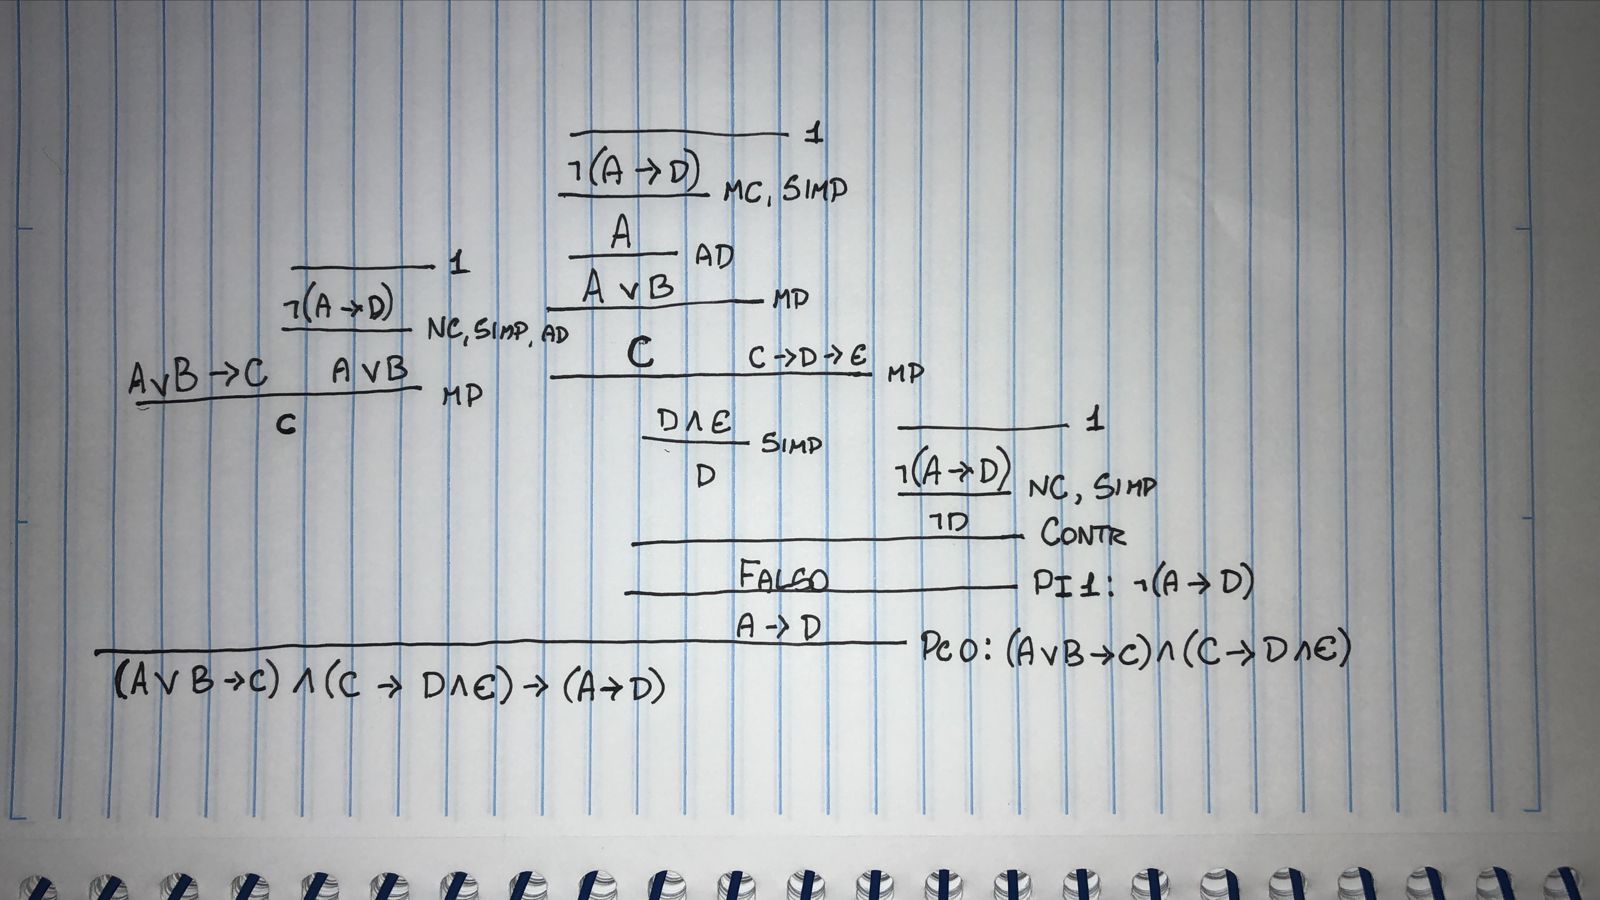 1
¬(A → D) MC, SIMP
A AD
A ∨ B MP
1
¬(A → D) NC, SIMP, AD
A∨B → C A ∨ B MP
C
C C → D → E MP
D ∧ E SIMP
D
1
¬(A → D) NC, SIMP
¬D CONTR
FALSO PI 1: ¬(A → D)
A → D PC 0: (A ∨ B → C) ∧ (C → D ∧ E)
(A ∨ B → C) ∧ (C → D ∧ E) → (A → D)